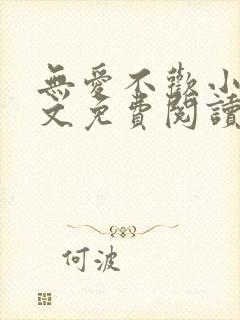 無愛不歡小
文免費閱讀
何波